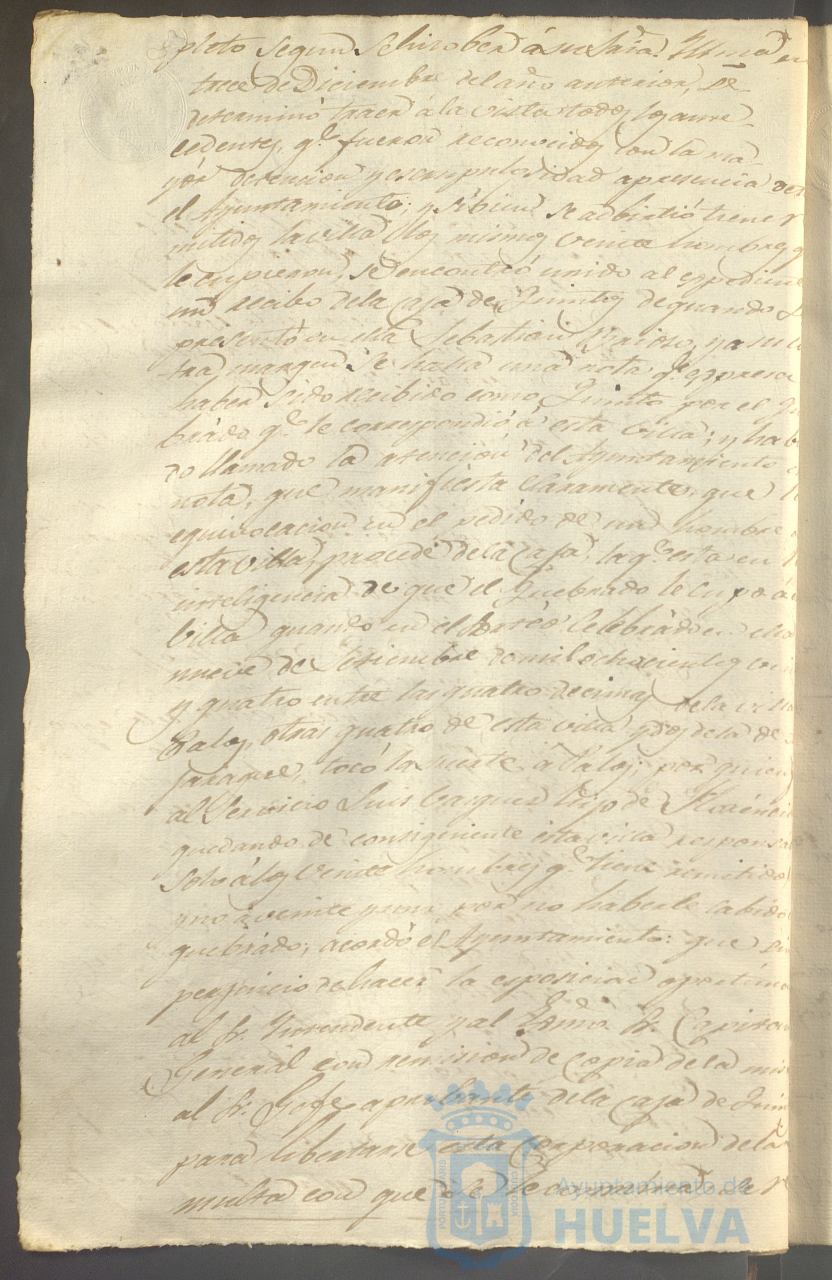 pleto segun se hizo ber á su Sria. Ilma. en
trece de Diciembre del año anterior, se
determinó traer á la vista todos los ante-
cedentes, qe. fueron reconocidos con la ma-
yor detencion y escrupulosidad a presencia de
el Ayuntamiento; y si bien se adbirtió tiene r
mitidos la villa los mismos veinte hombres q
le cupieron, se encontró unido al expedien
un recibo de la caja de Quintos de quando se
presentó en ella Sebastian y a su
tra margen se halla una nota qe. expresa
haber sido recibido como Quinto por el qu
brado qe. le correspondió á esta villa; y habi
do llamado la atencion del Ayuntamiento
nota, que manifiesta claramente, que l
equivocacion en el pedido de un hombre
esta villa, procede de la caja, la qe. está en l
inteligencia de que el Quebrado le cupo á
villa quando en el sorteo celebrado en
nueve de Setiembre de mil ochocientos vein
y quatro entre las quatro decimas de la villa
Palos, otras quatro de esta villa y dos de la de
tocó la suerte á Palos, por quien
al Servicio Luis Vazquez hijo de
quedando de consiguiente esta villa responsa
solo á los veinte hombres qe. tiene remitidos
y no a veinte y uno por no haberle cabido
quebrado; acordó el Ayuntamiento: que sin
perjuicio de hacer la esposicion oportuna
al Sr. Yntendente y al Exmo. Sr. Capitan
General con remision de copia de la mis
al Sr. Gefe aprobante de la caja de Quin
para libertarse esta corporacion de la
multa con que se le conmina de r
Ayuntamiento de
HUELVA